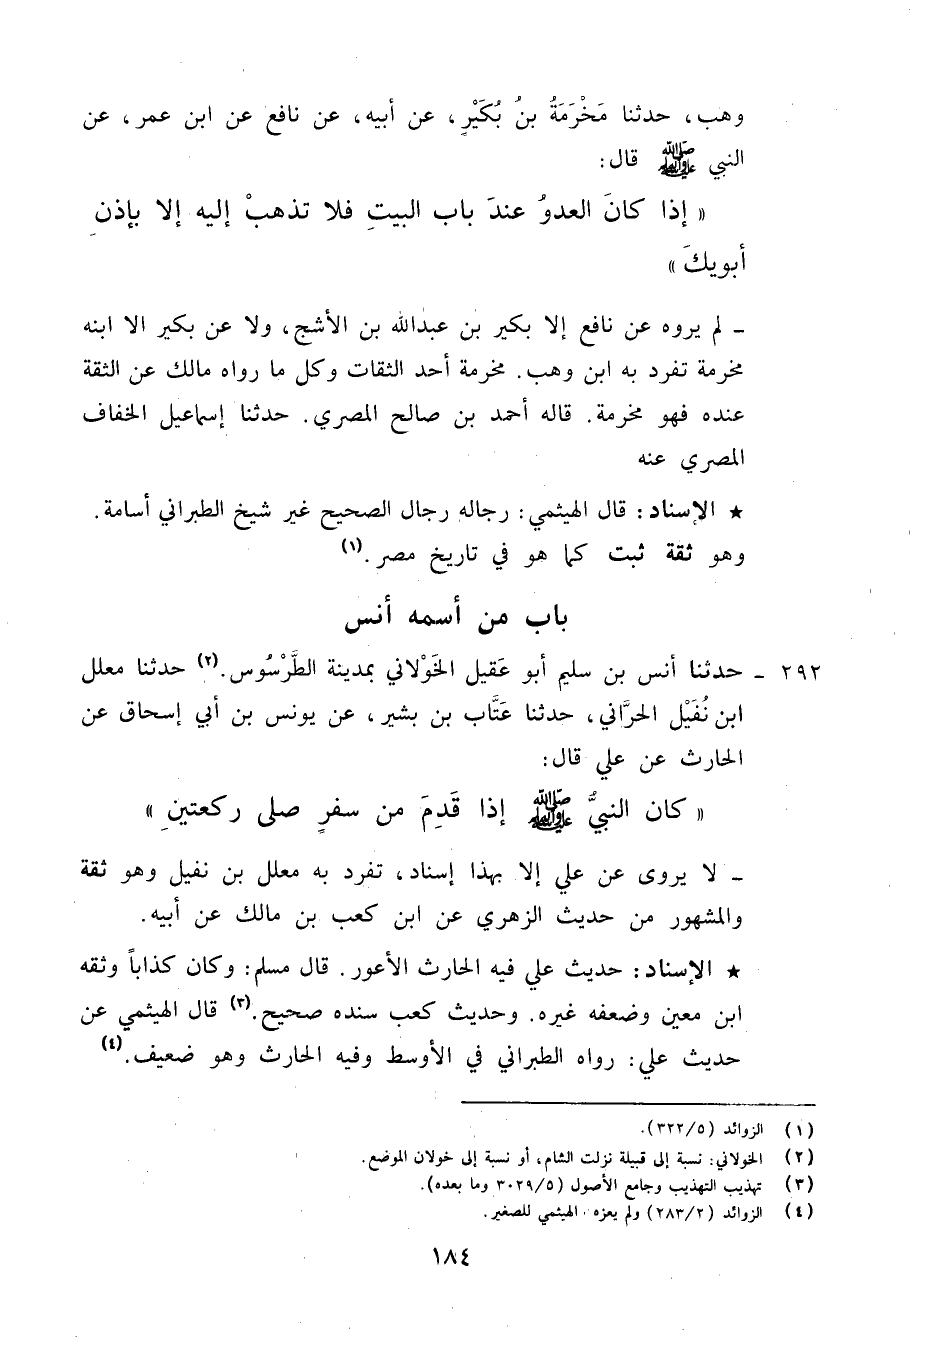 وهب، حدثنا مَخْرَمَةُ بنُ بُكَيْرٍ، عن أبيه، عن نافع عن ابن عمر، عن
النبي ﷺ قال:
« إذا كانَ العدوُ عندَ باب البيتِ فلا تذهبْ إليه إلا بإذنِ
أبويكَ »
ـ لم يروه عن نافع إلا بكير بن عبدالله بن الأشج، ولا عن بكير الا ابنه
مخرمة تفرد به ابن وهب. مخرمة أحد الثقات وكل ما رواه مالك عن الثقة
عنده فهو مخرمة. قاله أحمد بن صالح المصري. حدثنا إسماعيل الخفاف
المصري عنه
★ الإسناد: قال الهيثمي: رجاله رجال الصحيح غير شيخ الطبراني أسامة.
وهو ثقة ثبت كما هو في تاريخ مصر.(١)
باب من أسمه أنس
٢٩٢ ـ حدثنا أنس بن سليم أبو عَقيل الخَوْلاني بمدينة الطَّرْسُوس.(٢) حدثنا معلل
ابن نُفَيْل الحرَّاني، حدثنا عَتَّاب بن بشير، عن يونس بن أبي إسحاق عن
الحارث عن علي قال:
« كان النبيُّ ﷺ إذا قَدِمَ من سفرٍ صلى ركعتينِ »
ـ لا يروى عن علي إلا بهذا إسناد، تفرد به معلل بن نفيل وهو ثقة
والمشهور من حديث الزهري عن ابن كعب بن مالك عن أبيه.
★ الإسناد: حديث علي فيه الحارث الأعور. قال مسلم: وكان كذاباً وثقه
ابن معين وضعفه غيره. وحديث كعب سنده صحيح.(٣) قال الهيثمي عن
حديث علي: رواه الطبراني في الأوسط وفيه الحارث وهو ضعيف.(٤)
(١) الزوائد (٣٢٢/٥).
(٢) الخولاني: نسبة إلى قبيلة نزلت الشام، أو نسبة إلى خولان الموضع.
(٣) تهذيب التهذيب وجامع الأصول (٣٠٢٩/٥ وما بعده).
(٤) الزوائد (٢٨٣/٢) ولم يعزه الهيثمي للصغير.
١٨٤